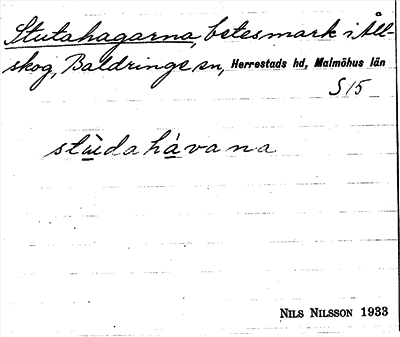 Stutahagarna, betesmark i Äll-
skog, Baldringe sn, Herrestads hd, Malmöhus län
S 15
stùdahávana
NILS NILSSON 1933